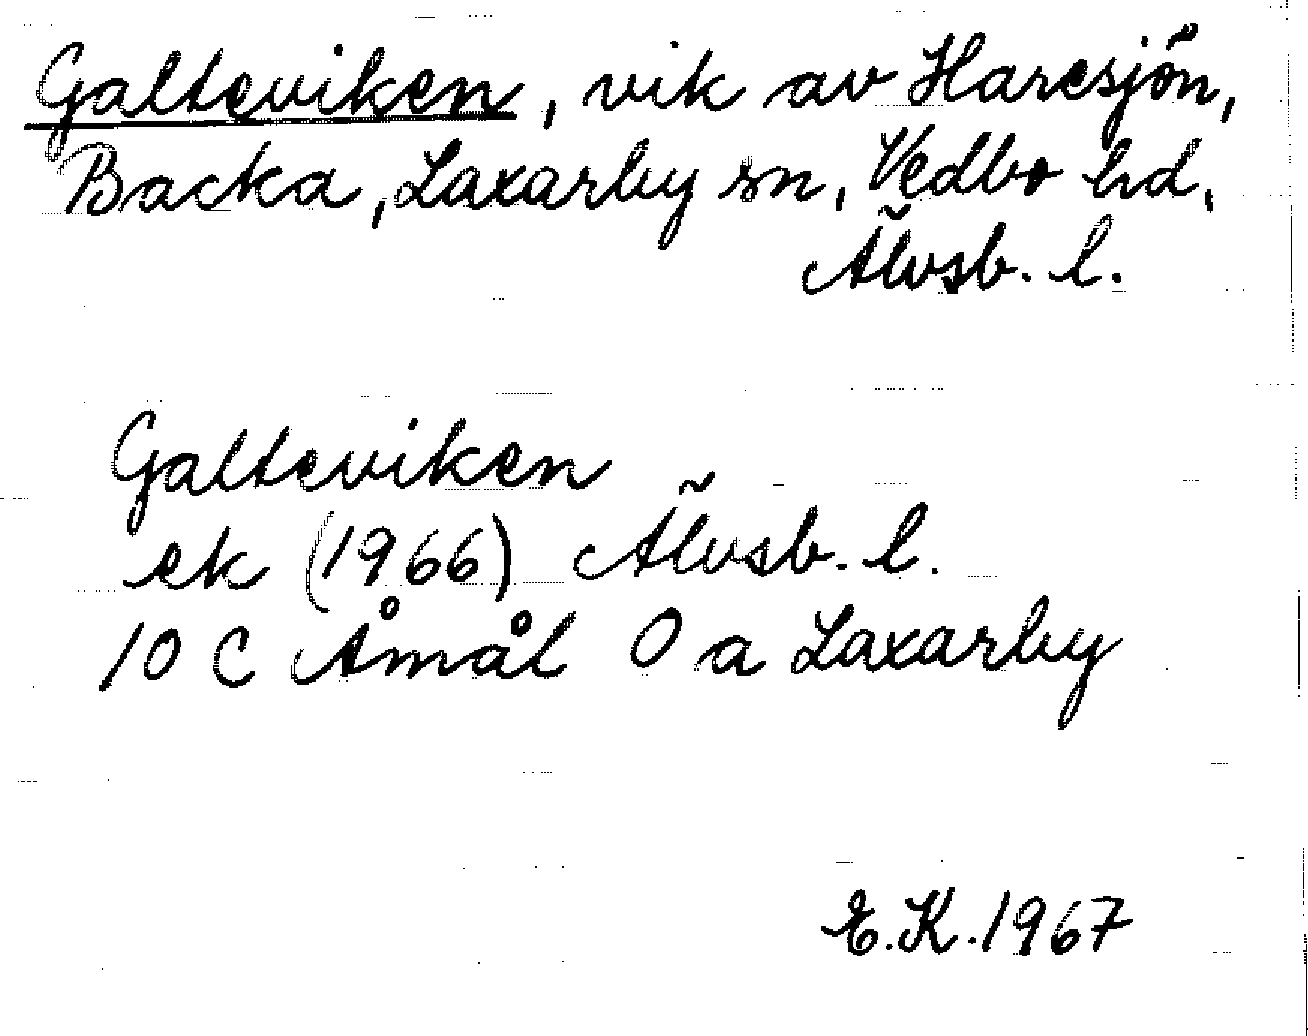 Galteviken, vik av Haresjön,
Backa, Laxarby sn, Vedbo hd,
Älvsb. l.
Galteviken
ek (1966) Älvsb. l.
10 C Åmål O a Laxarby
E.K. 1967